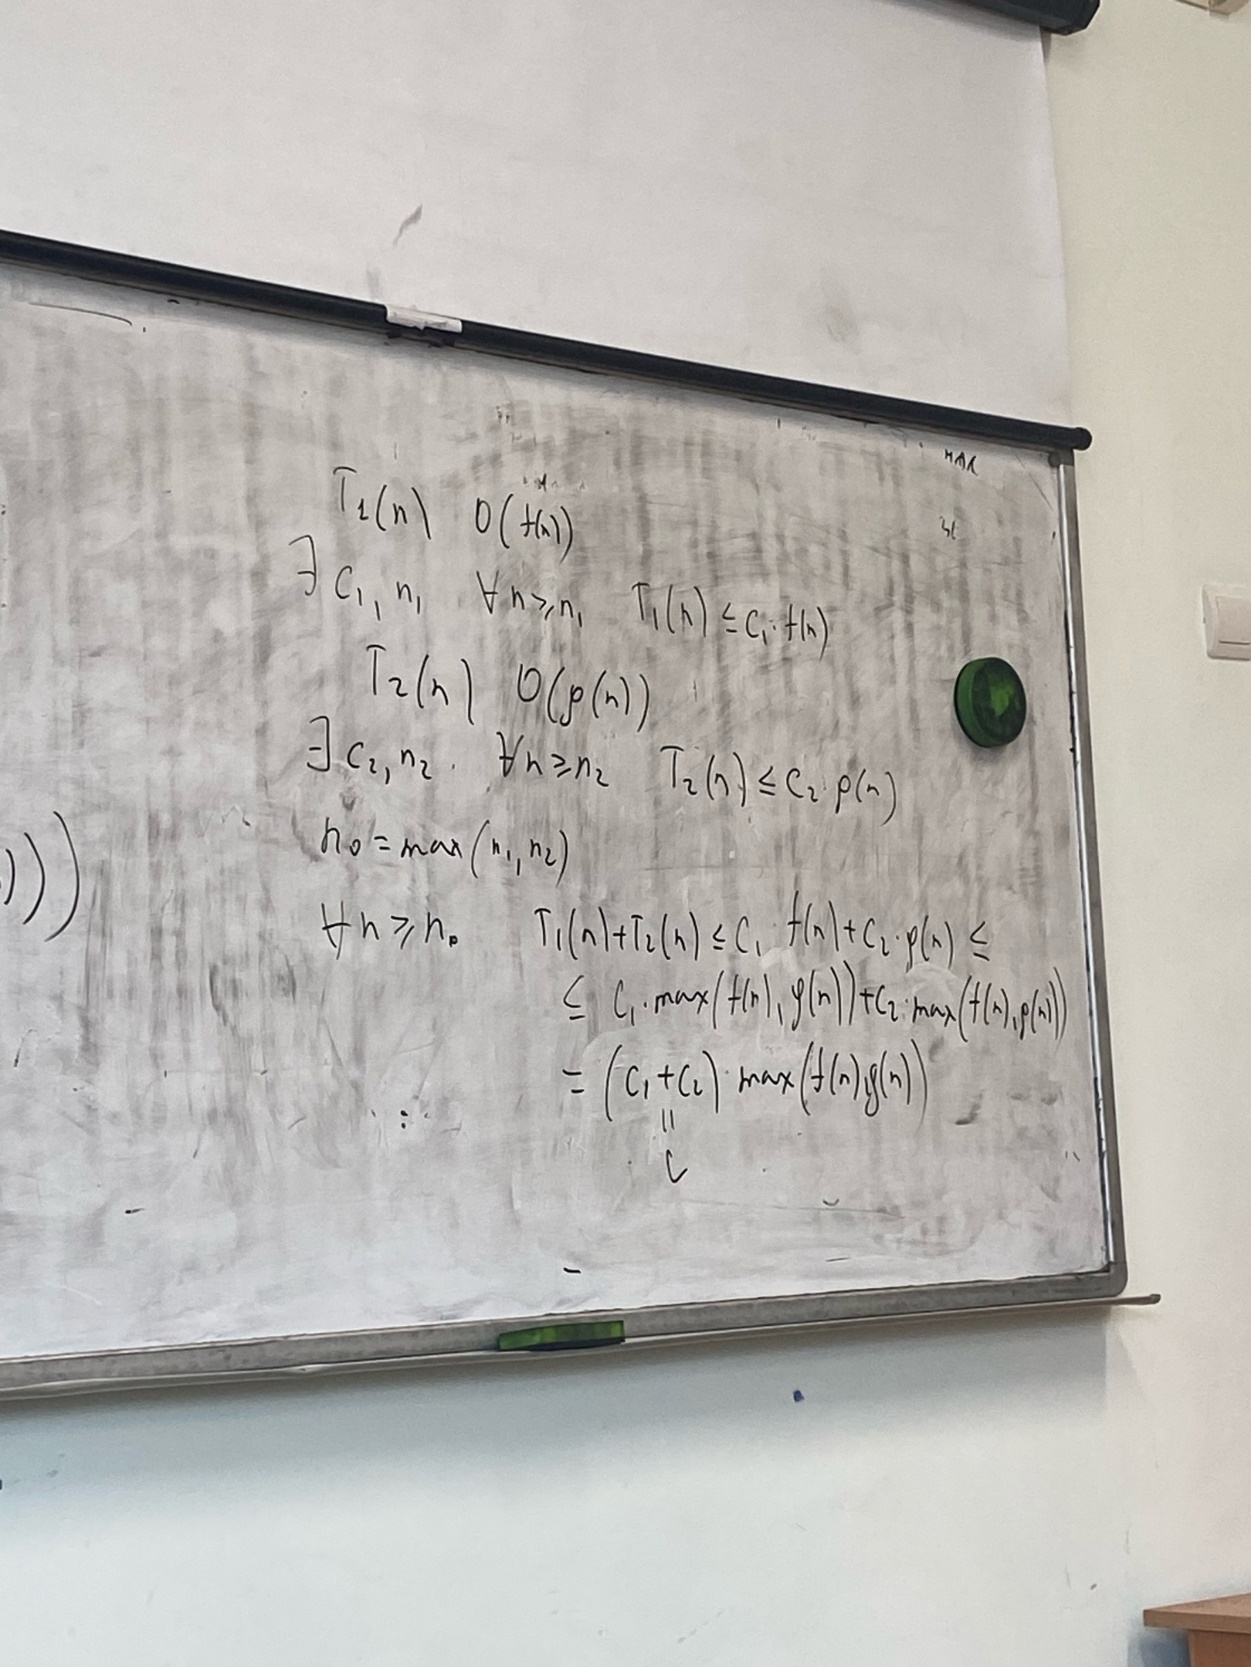 T₁(n) O(f(n))
∃ c₁, n₁ ∀n⩾n₁ T₁(n) ≤ c₁·f(n)
T₂(n) O(g(n))
∃ c₂, n₂. ∀n⩾n₂ T₂(n) ≤ c₂·g(n)
n₀ = max(n₁, n₂)
)))
∀n⩾n₀ T₁(n)+T₂(n) ≤ c₁ f(n)+c₂·g(n) ≤
≤ c₁·max(f(n), g(n))+c₂·max(f(n), g(n))
= (c₁+c₂)·max(f(n), g(n))
||
c